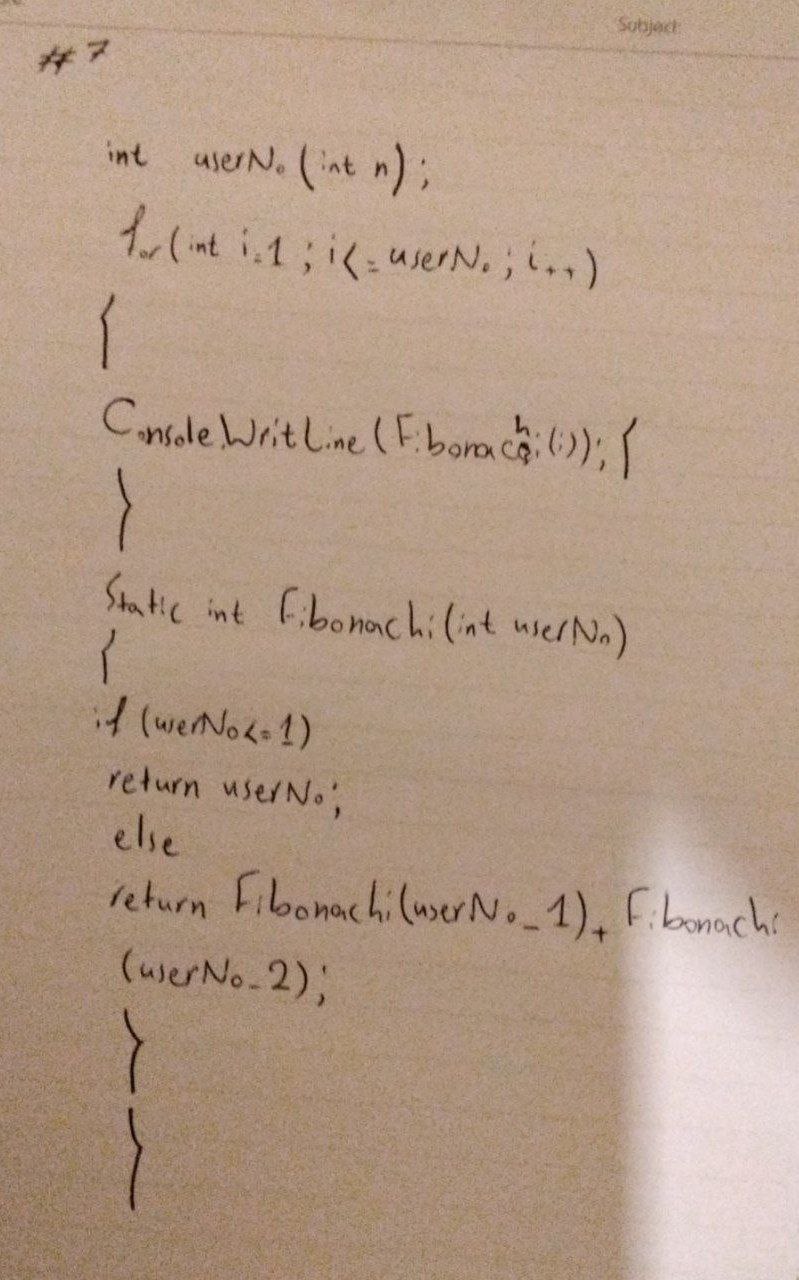 Subject:
#7
int userNo(int n);
for(int i=1; i<=userNo; i++)
{
Console.WritLine(Fibonachi(i)); {
}
Static int Fibonachi(int userNo)
{
if (userNo<=1)
return userNo;
else
return Fibonachi(userNo-1)+Fibonachi
(userNo-2);
}
}